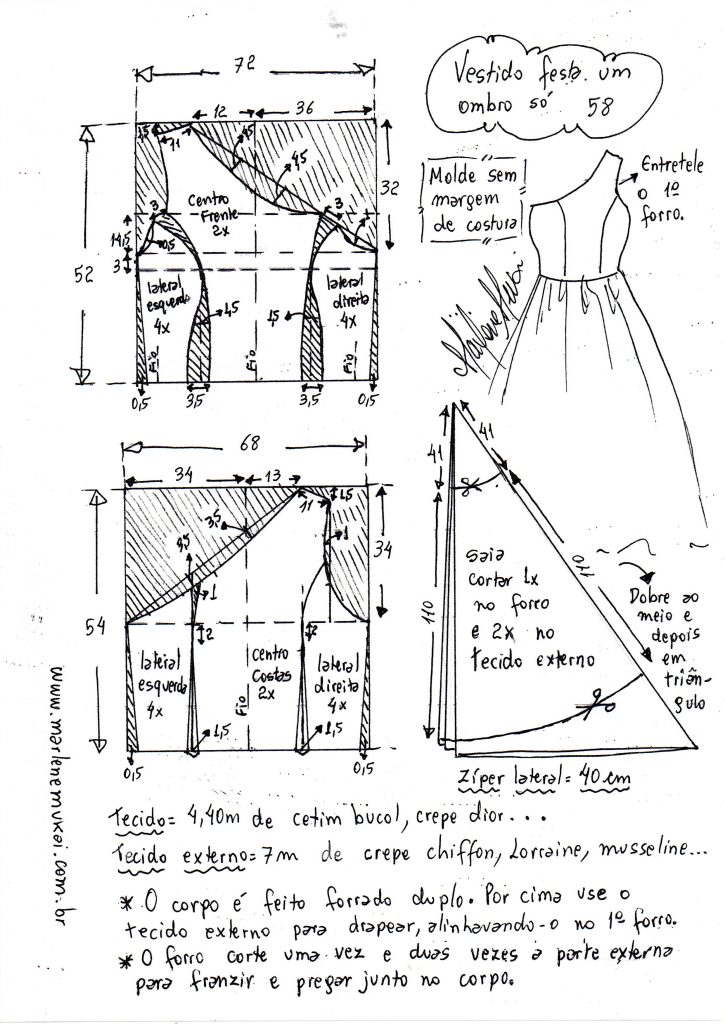 Vestido festa um
ombro só 58
Molde sem
margem
de costura
Entretele
o 1º
forro.
72
12
36
1,5
11
4,5
4,5
32
52
Centro
Frente
2x
3
3
1
14,5
0,5
3
lateral
esquerda
4x
lateral
direita
4x
1,5
1,5
Fio
Fio
Fio
0,5
3,5
3,5
0,5
68
34
13
3,5
11
1,5
3,5
1
1
34
54
2
2
lateral
esquerda
4x
Centro
Costas
2x
lateral
direita
4x
Fio
1,5
1,5
0,5
0,5
41
41
110
110
saia
cortar 1x
no forro
e 2x no
tecido externo
Dobre ao
meio e
depois
em
triân-
gulo
Zíper lateral = 40 cm
Tecido = 4,40m de cetim bucol, crepe dior...
Tecido externo = 7m de crepe chiffon, Lorraine, musseline...
* O corpo é feito forrado duplo. Por cima use o
tecido externo para drapear, alinhavando-o no 1º forro.
* O forro corte uma vez e duas vezes a parte externa
para franzir e pregar junto no corpo.
www.marlenemukai.com.br